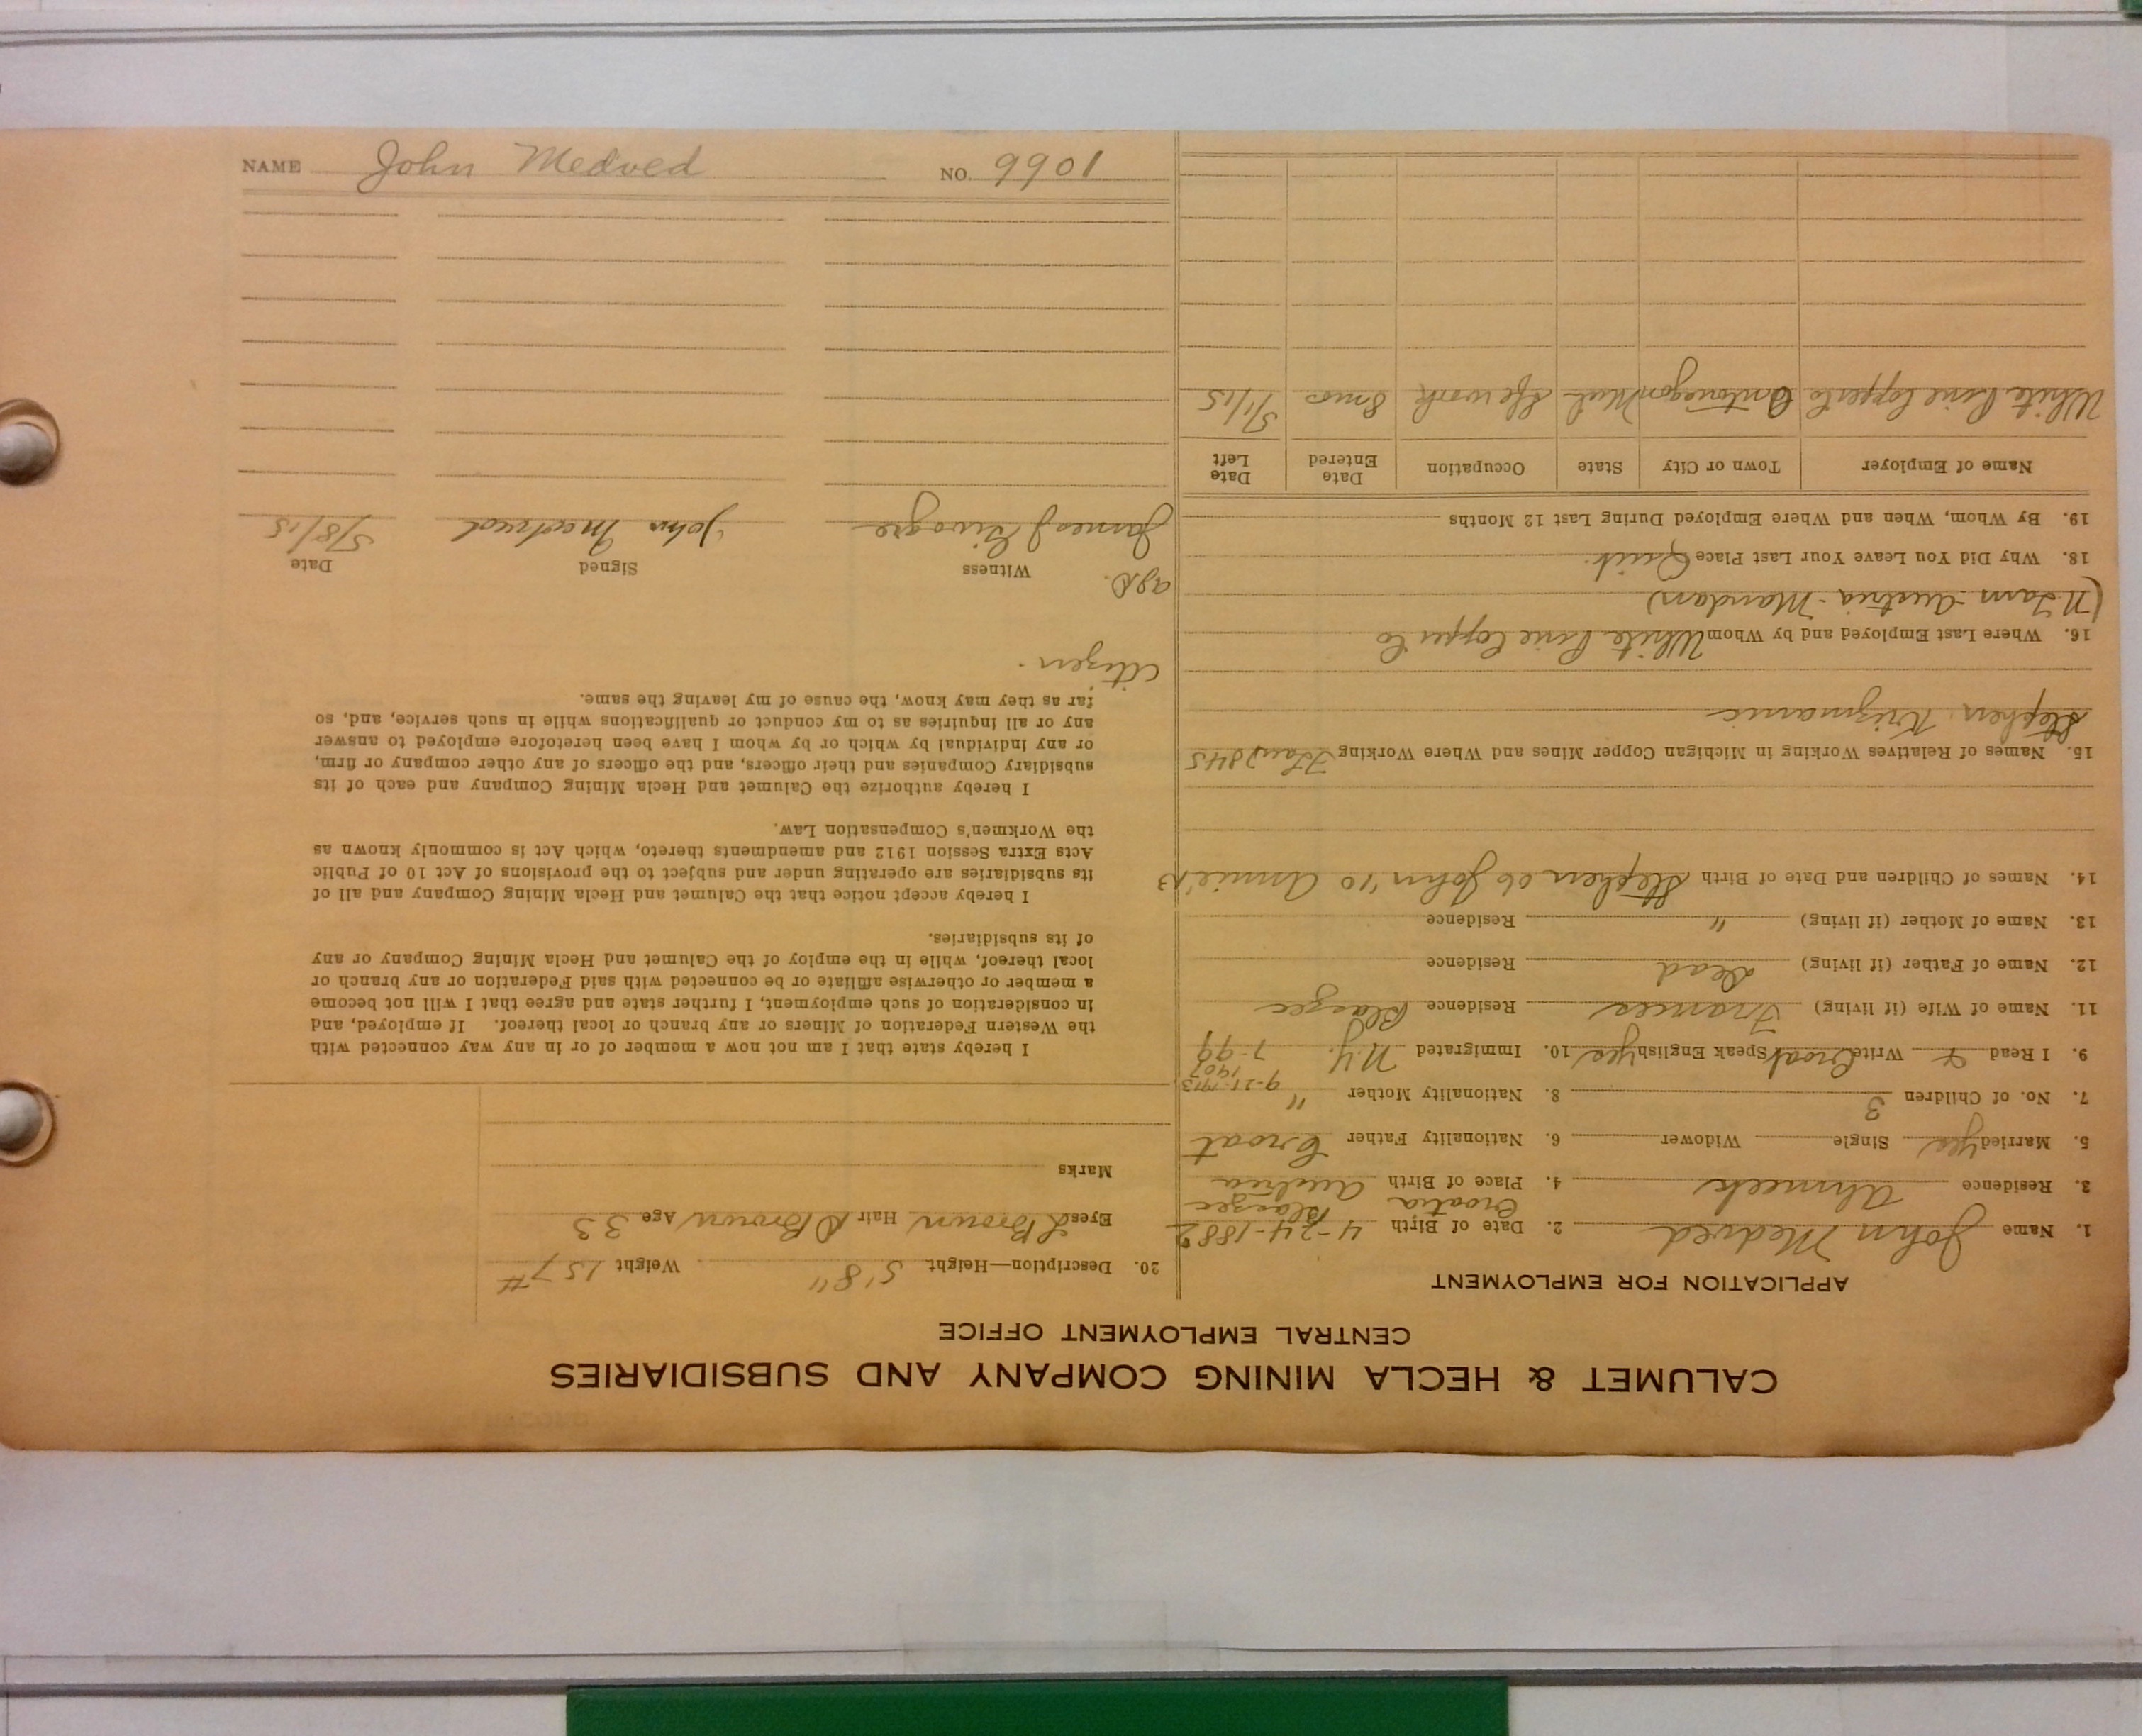 CALUMET & HECLA MINING COMPANY AND SUBSIDIARIES
CENTRAL EMPLOYMENT OFFICE
APPLICATION FOR EMPLOYMENT
1. Name John Medved 2. Date of Birth 4-24-1882
Croatia Blaagee
3. Residence Ahmeek 4. Place of Birth Austria
5. Married yes Single Widower 6. Nationality Father Croat
7. No. of Children 3 8. Nationality Mother "
9-21-1913
1907
9. I Read & Write Croat Speak English yes 10. Immigrated N.Y. 7-99
11. Name of Wife (if living) Frances Residence Blaagee
12. Name of Father (if living) Dead Residence
13. Name of Mother (if living) " Residence
14. Names of Children and Date of Birth Stephen 06 John '10 Annie '13
15. Names of Relatives Working in Michigan Copper Mines and Where Working 845
Stephen Krizmanic
16. Where Last Employed and by Whom White Pine Copper Co
Austria - Mandan)
18. Why Did You Leave Your Last Place Quit.
19. By Whom, When and Where Employed During Last 12 Months
Name of Employer Town or City State Occupation Date Entered Date Left
White Pine Copper Co Ontonagon Mich Sfc work 8 mos 5/1/15
20. Description—Height 5'8" Weight 157#
Eyes L Brown Hair D Brown Age 33
Marks
I hereby state that I am not now a member of or in any way connected with
the Western Federation of Miners or any branch or local thereof. If employed, and
in consideration of such employment, I further state and agree that I will not become
a member or otherwise affiliate or be connected with said Federation or any branch or
local thereof, while in the employ of the Calumet and Hecla Mining Company or any
of its subsidiaries.
I hereby accept notice that the Calumet and Hecla Mining Company and all of
its subsidiaries are operating under and subject to the provisions of Act 10 of Public
Acts Extra Session 1912 and amendments thereto, which Act is commonly known as
the Workmen's Compensation Law.
I hereby authorize the Calumet and Hecla Mining Company and each of its
subsidiary Companies and their officers, and the officers of any other company or firm,
or any individual by which or by whom I have been heretofore employed to answer
any or all inquiries as to my conduct or qualifications while in such service, and, so
far as they may know, the cause of my leaving the same.
Citizen.
Witness Signed Date
James J John Medved 5/8/15
NAME John Medved NO. 9901